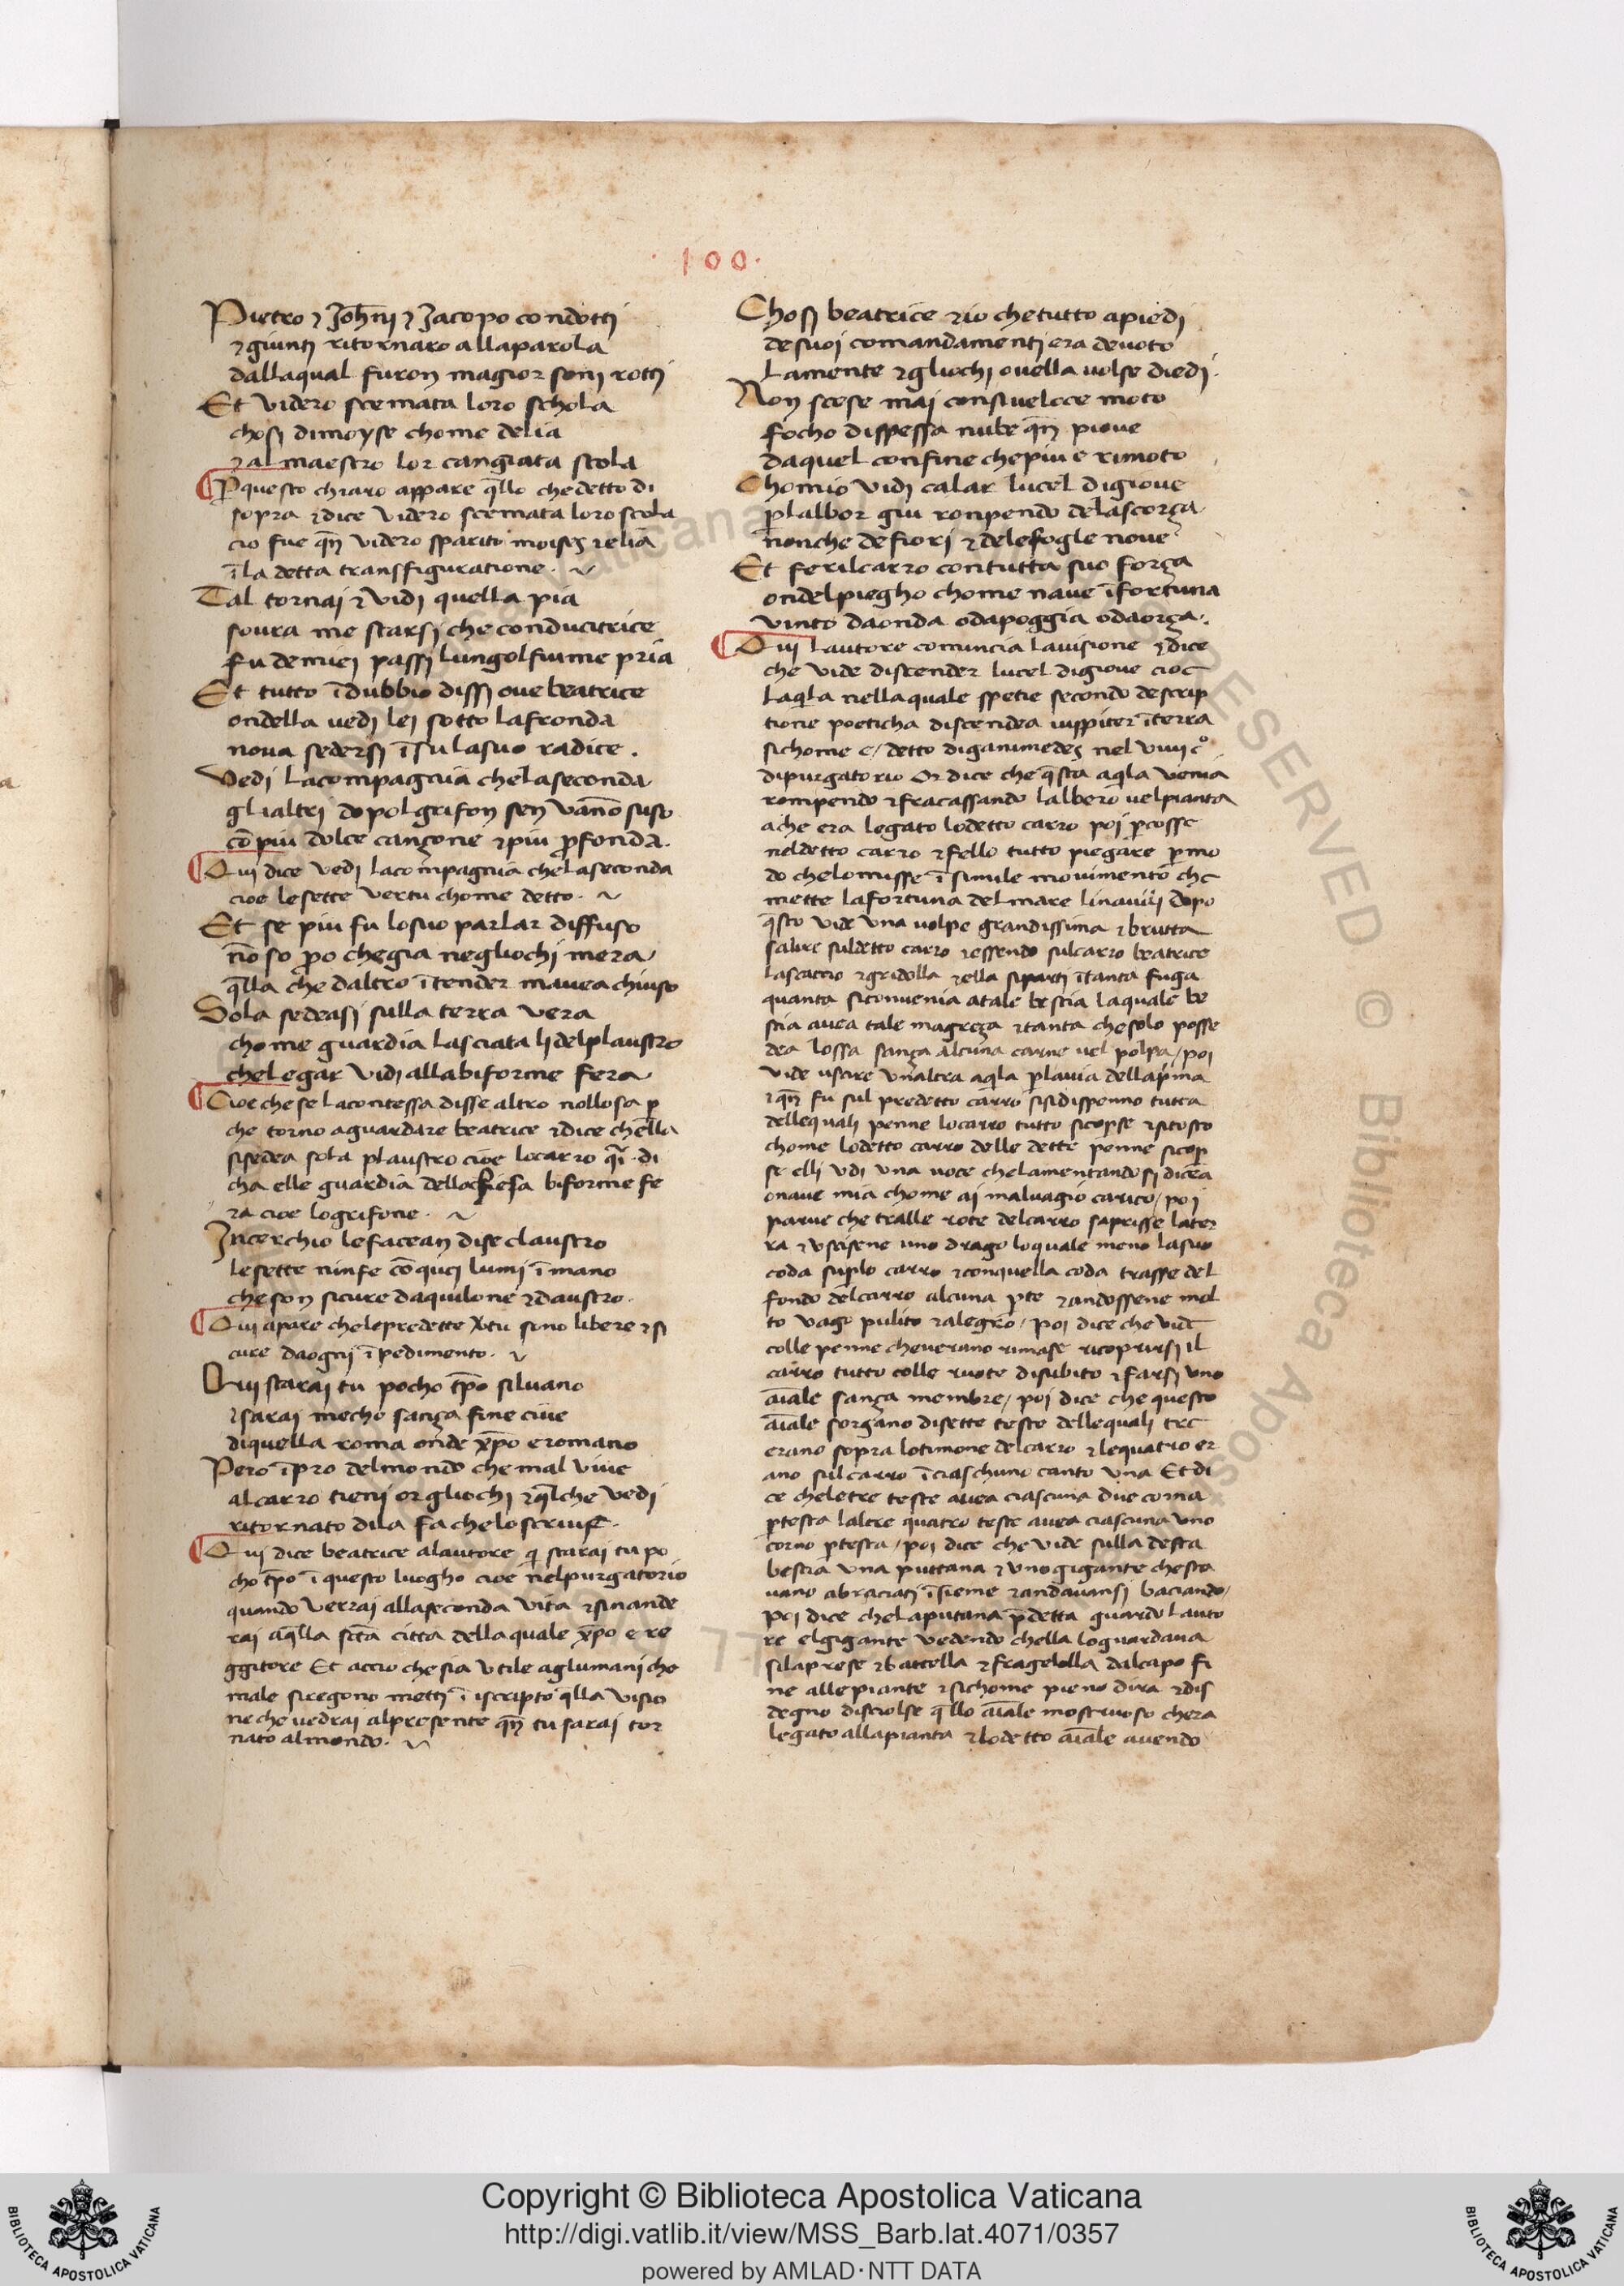 .100.
Pietro ⁊ Joħni ⁊ Jacopo condotti
⁊giunti ritornaro allaparola
dallaqual furon magior sonni rotti
Et videro scemata loro schola
chosi dimoyse chome delia
⁊al maestro lor cangiata stola
P̱questo chiaro appare q̄llo chedetto di
sopra ⁊dice videro scemata loro scola
cio fue qn̄ videro sparito moises ⁊elia
ī la detta transfiguratione.
Tal tornai ⁊ vidi quella pia
soura me starsi che conducitrice
fu demiei passi lungolfiume pria
Et tutto ī dubbio dissi oue beatrice
ondella uedi lei sotto lafronda
noua sedersi ī su lasuo radice.
Vedi lacompagnia chelaseconda
glialtri dopol grifon sen vanno suso
cō piu dolce cançone ⁊piu ꝓfonda.
Qui dice vedi lacompagnia chelaseconda
cioe lesette vertu chome detto.
Et se piu fu losuo parlar diffuso
nō so ꝑo chegia negliochi mera
q̄lla che daltro ītender mauea chiuso
Sola sedeasi sulla terra vera
chome guardia lasciata li delplaustro
chelegar vidi allabiforme fera
Cioe chese lacontessa disse altro nollosa ꝑ
che torno aguardare beatrice ⁊dice chella
sisedea sola plaustro cioe locarro q̄i. di
cha elle guardia dellachiesa biforme fe
ra cioe logrifone.
Incerchio lefacean dise claustro
lesette ninfe cō quei lumi ī mano
cheson sicure daquilone ⁊daustro.
Qui apare chelepredette v̄tu sono libere ⁊si
cure daogni īpedimento.
Qui starai tu pocho tp̄o siluano
⁊sarai mecho sança fine ciue
diquella roma onde xp̄o eromano
Pero īpro delmondo che mal viue
alcarro tieni or gliochi ⁊q̄lche vedi
ritornato dila fa cheloscriue.
Qui dice beatrice alautore q̄ starai tu po
cho tp̄o ī questo luogho cioe nelpurgatorio
quando verrai allaseconda vita ⁊sinande
rai aq̄lla sctā citta dellaquale xp̄o e re
ggitore Et accio chesia vtile aglumani che
male siregono metti ī iscripto q̄lla visio
ne che uedrai alpresente qn̄ tu sarai tor
nato almondo.
Chosi beatrice ⁊io chetutto apiedi
desuoi comandamenti era deuoto
Lamente ⁊gliochi ouella uolse diedi.
Non scese mai consiueloce moto
focho dispessa nube qn̄ pioue
daquel confine chepiu e rimoto
Chomio vidi calar lucel digioue
ꝑlalbor giu ronpendo delascorça
nonche defiori ⁊delefogle noue
Et ferilcarro contutta suo força
ondelpiegho chome naue īfortuna
vinto daonda odapoggia odaorça.
Qui lautore comincia lauisione ⁊dice
che vide discender lucel digioue cioe
laq̄la nellaquale spetie secondo descrip
tione poeticha discendea iuppiter īterra
sichome e/ detto diganimedes nel viiii cͦ
dipurgatorio Or dice che q̄sta aq̄la venia
rompendo ⁊fracassando lalbero uelpianta
ache era legato lodetto carro poi ꝑcosse
neldetto carro ⁊fello tutto piegare ꝑmo
do chelomisse ī simile mouimento che
mette lafortuna delmare linauili dopo
q̄sto vide vna uolpe grandissima ⁊brutta
salire suldetto carro ⁊essendo sulcarro beatrice
lascaccio ⁊gridolla ⁊ella siparti ītanta fuga
quanta siconuenia atale bestia laquale be
stia auea tale magreça ⁊tanta chesolo posse
dea lossa sança alcuna carne uel polpa/ poi
vide uscire vnaltra aq̄la ꝑlauia dellaprima
⁊qn̄ fu sul predetto carro sisidispenno tutta
dellequali penne locarro tutto sicoꝑse ⁊sitosto
chome lodetto carro delle dette penne sicoꝑ
se elli vdi vna uoce chelamentandosi dicea
onaue mia chome ai maluagio carico/ poi
parue che tralle rote delcarro saprisse later
ra ⁊vscisene uno drago loquale meno lasuo
coda suplo carro ⁊conquella coda trasse del
fondo delcarro alcuna ꝑte ⁊andossene mol
to vago pulito ⁊alegro/ poi dice che vide
colle penne cheuerano rimase ricoprirsi il
carro tutto colle ruote disubito ⁊farsi vno
aīale sança membre/ poi dice che questo
aīale sorgano disette teste dellequali tre
erano sopra lotimone delcarro ⁊lequatro er
ano sulcarro īciaschuno canto vna Et di
ce cheletre teste auea ciascuna due corna
ꝑtesta laltre quatro teste auea ciascuna vno
corno ꝑtesta/ poi dice che vide sulla desta
bestia vna puttana ⁊vnogigante chesta
uano abraciati īsieme ⁊andauansi baciando/
poi dice chelaputana p̄detta guardo lauto
re elgigante vedendo chella loguardaua
silaprese ⁊battella ⁊fragellolla dalcapo fi
ne allepiante ⁊sichome pieno dira ⁊dis
degno disciolse q̄llo aīale mostruoso chera
legato allapianta ⁊lodetto aīale auendo
Copyright © Biblioteca Apostolica Vaticana
http://digi.vatlib.it/view/MSS_Barb.lat.4071/0357
powered by AMLAD·NTT DATA
BIBLIOTECA APOSTOLICA VATICANA
BIBLIOTECA APOSTOLICA VATICANA